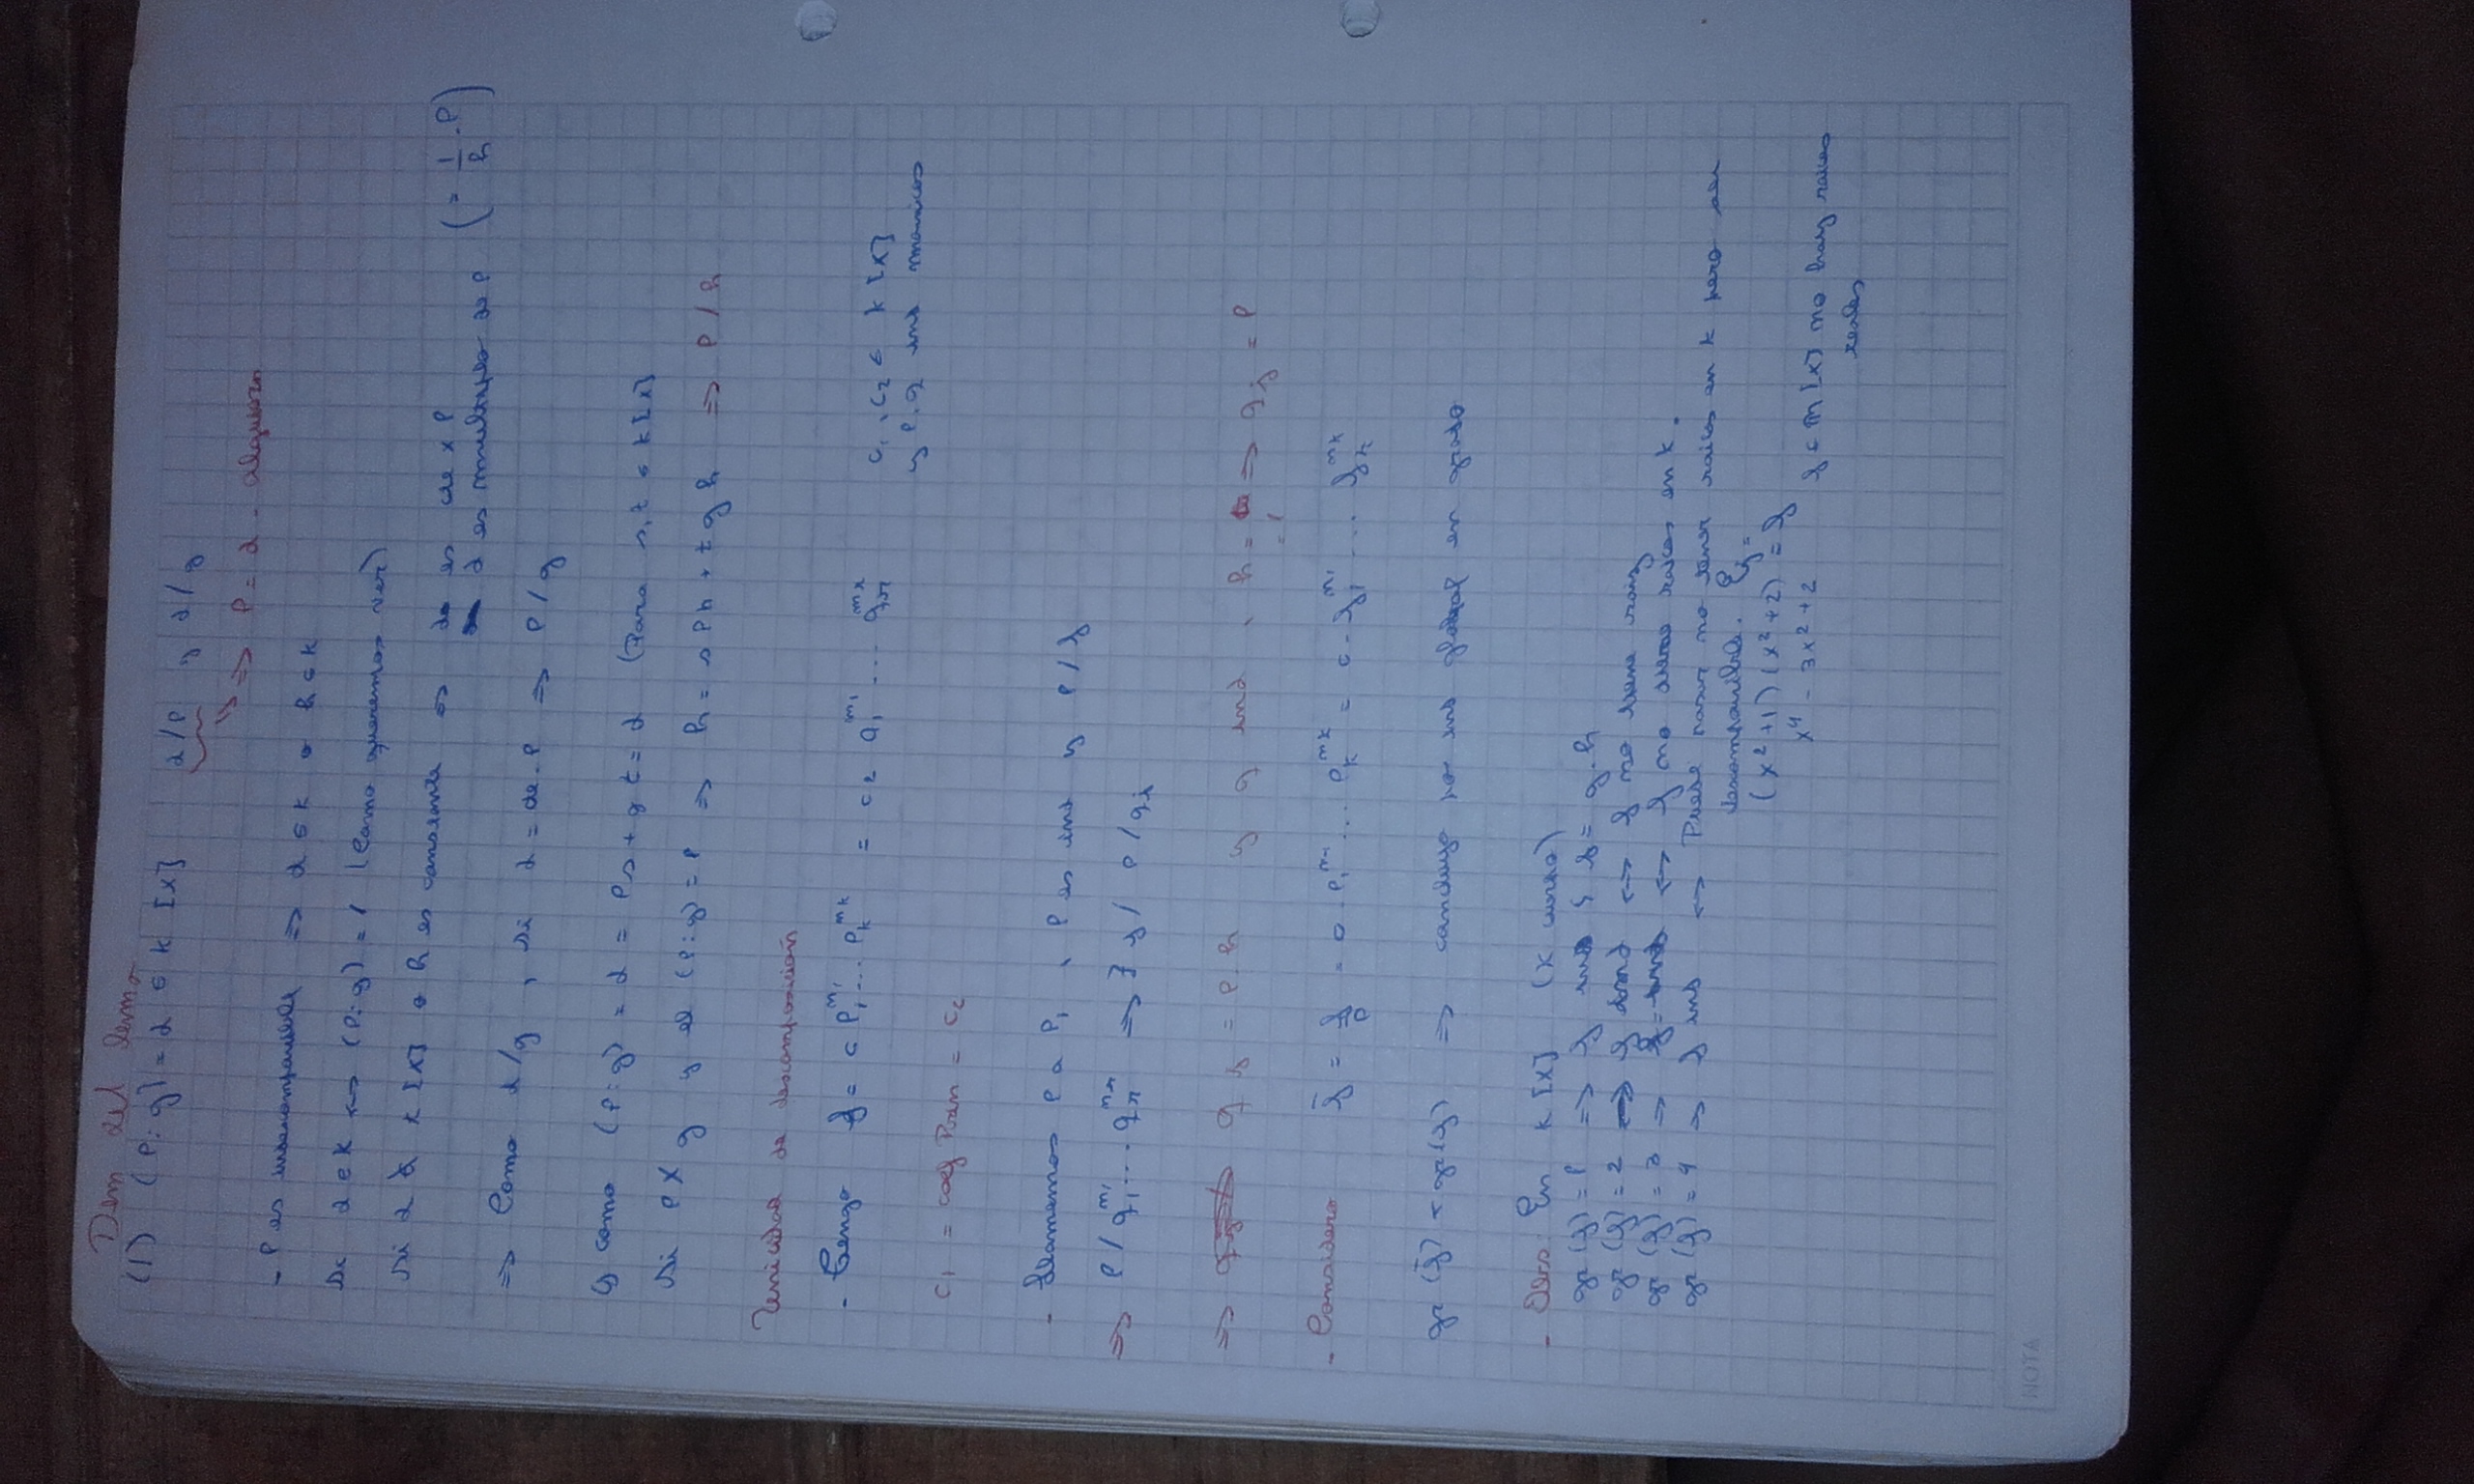 Dem del lema
(1) (P:g) = d ∈ k [x] d/P y d/g
⇒ P = d . alguien
- P es indescomponible ⇒ d ∈ k o h ∈ k
Si d ∈ k ↔ (P:g) = 1 (Como queremos ver)
Si d k [x] o h es constante ⇒ es cte x P
d es multiplo de P (= 1/h . P)
⇒ Como d/g , si d = cte . P ⇒ P/g
y como (P:g) = d = Ps + gt = d (Para s, t ∈ k[x]
Si P∤g y el (P:g) = P ⇒ h = s P h + t g h ⇒ P/h
Unicidad de descomposición
- Tengo f = c P₁^m₁ ... P_k^mk = c₂ q₁^m₁ ... q_r^mr c₁, c₂ ∈ k [x]
y P, q ind monicos
c₁ = coef Prin = c₂
- Llamemos P a P₁ , P es ind y P/f
⇒ P/q₁^m₁ ... q_r^mr ⇒ ∃ j / P/qj
⇒ q j = P.h y q ind , h = ⇒ qj = P
= 1
- Considero f̄ = f/P = c . P₁ ... P_k^mk = c .
gr (f̄) < gr(f) ⇒ concluyo por ind global en grado
- Obs: En k [x] (K cuerpo)
gr (f) = 1 ⇒ f ind f = g.h
gr (f) = 2 ⇒ f ind ↔ f no tiene raiz
gr (f) = 3 ⇒ ↔ f no tiene raices en k.
gr (f) = 4 ⇒ f ind ↔ Puede pasar no tener raices en k pero ser
descomponible. Ej =
(x² + 1) (x² + 2) = f
x⁴ - 3x² + 2 f ∈ [x] no hay raices
reales
NOTA